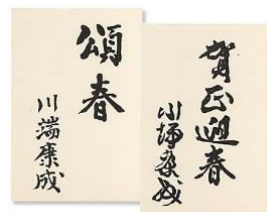 頌春
川端康成
賀正迎春
川端康成